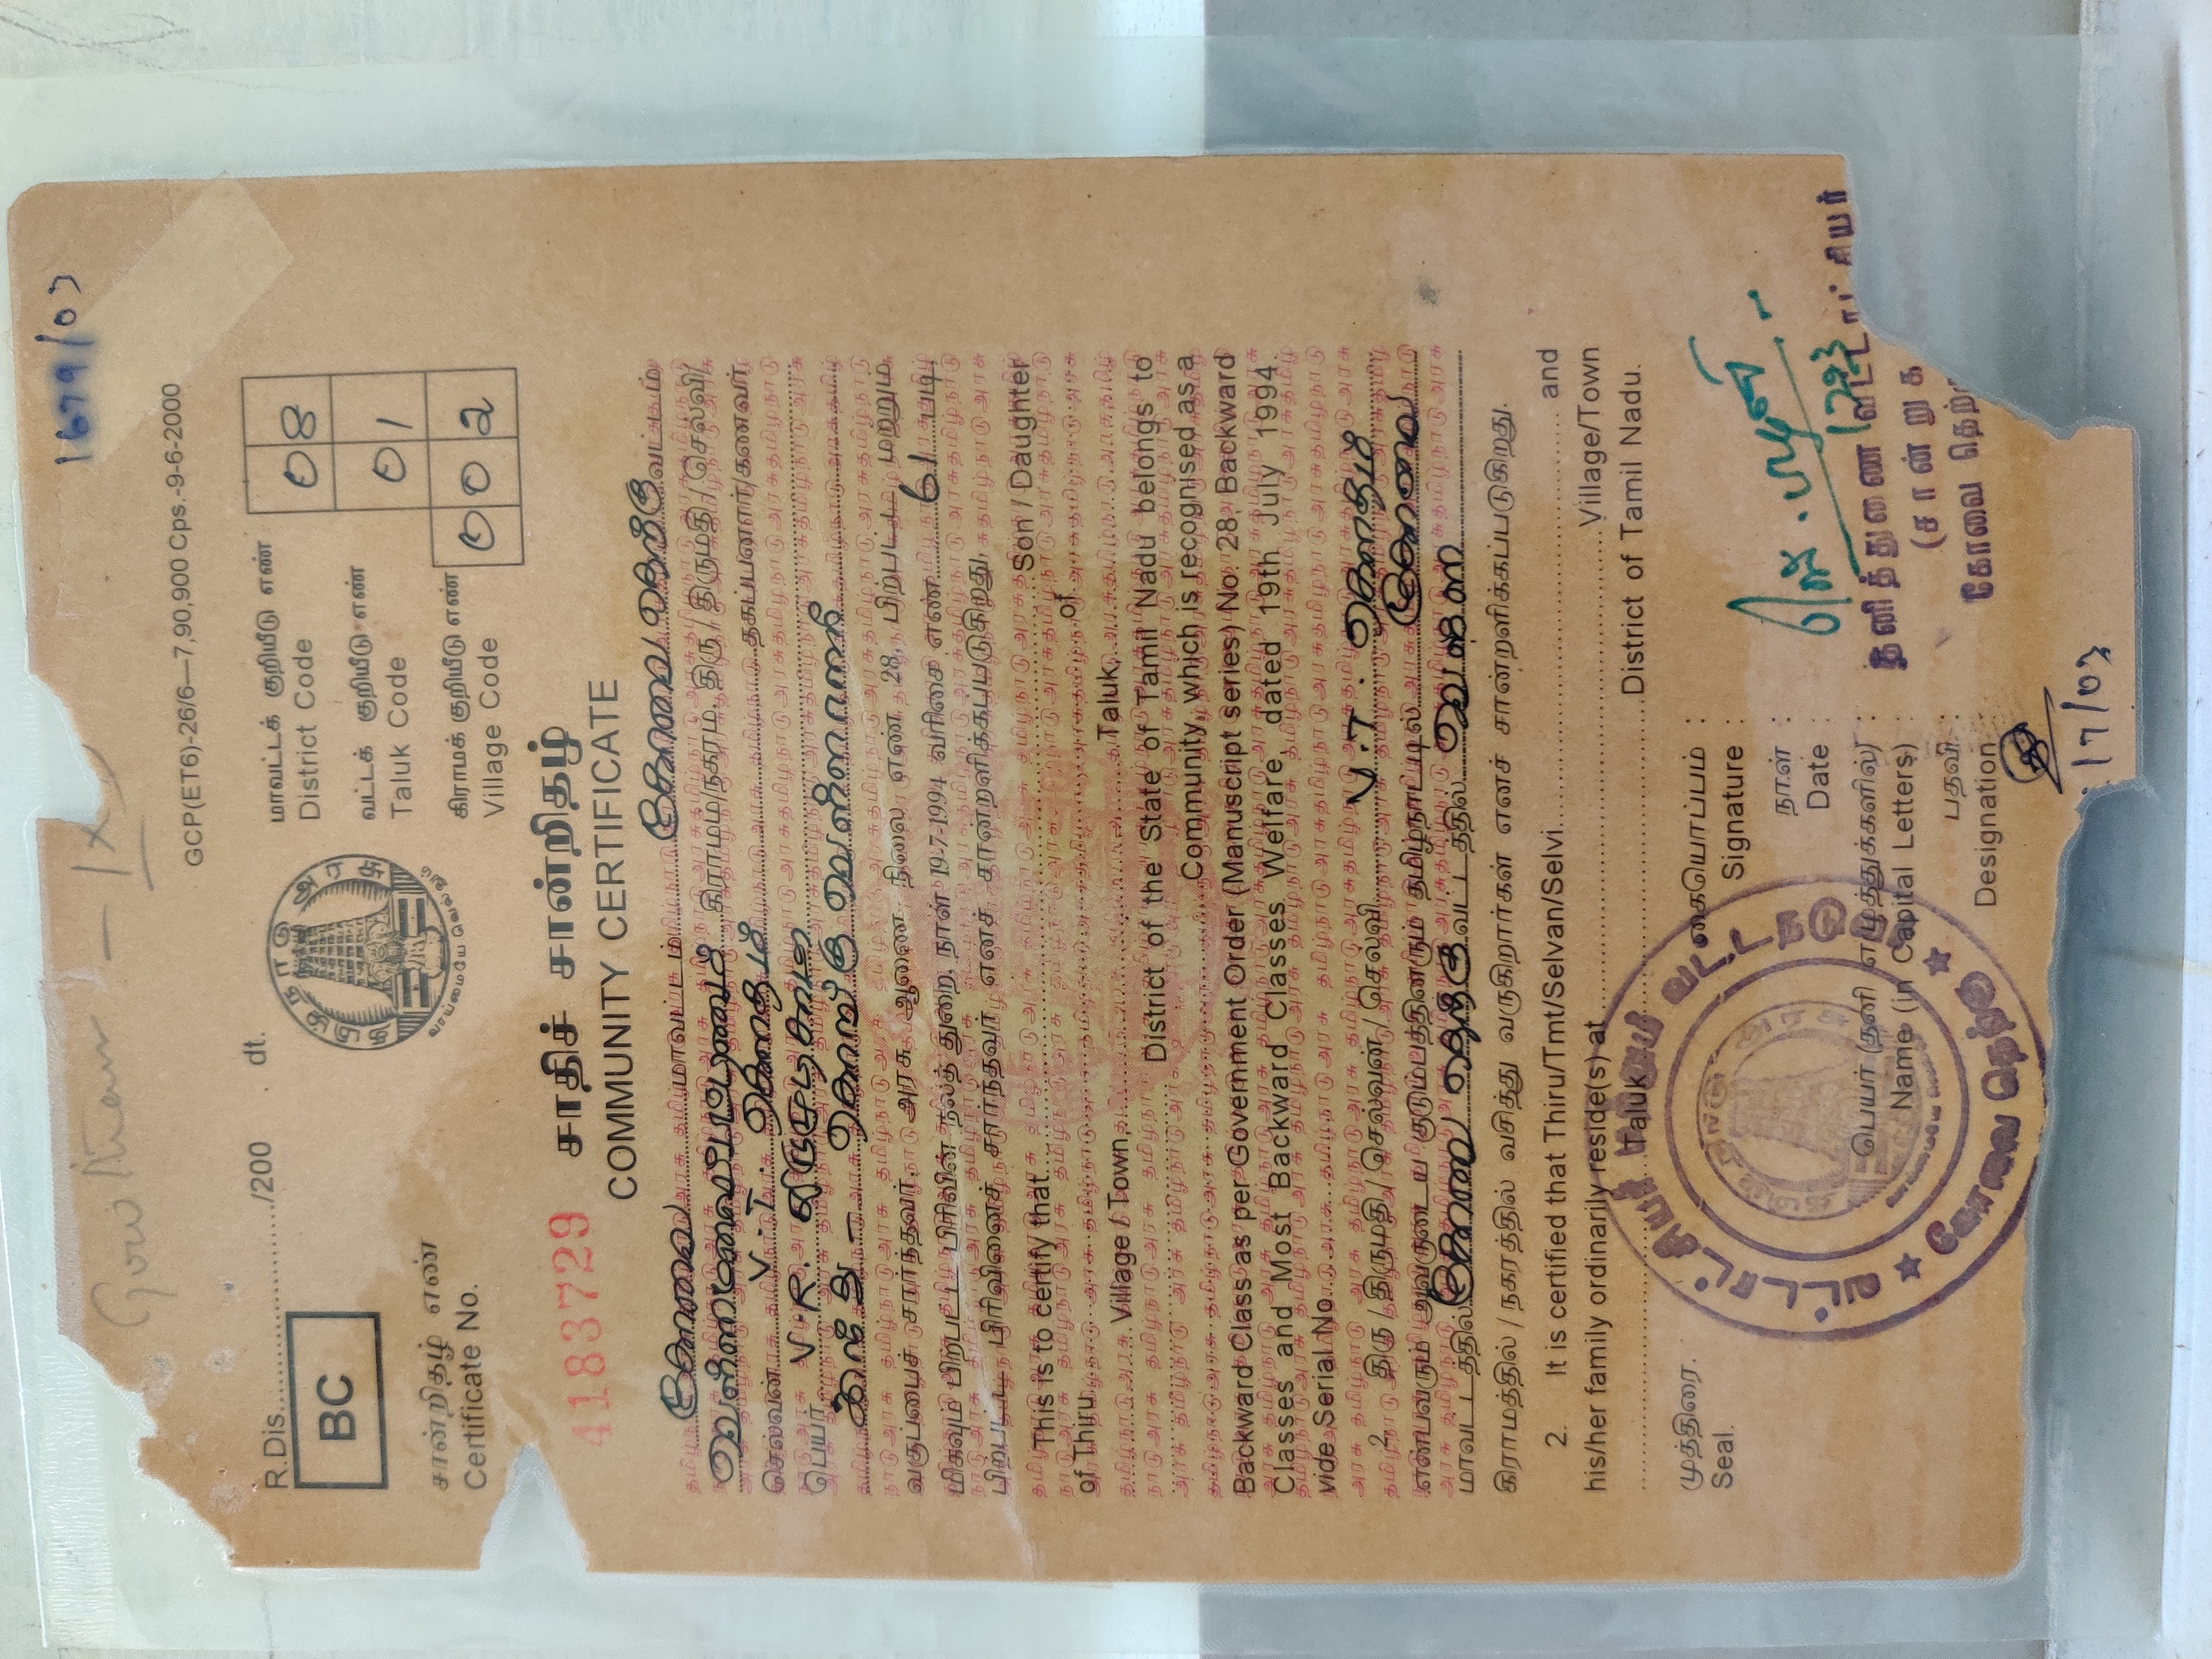 1679/03
GCP(ET6)-26/6—7,90,900 Cps.-9-6-2000
R.Dis............../200 dt.
BC
தமிழ்நாடு அரசு
வாய்மையே வெல்லும்
மாவட்டக் குறியீடு எண்
District Code
08
வட்டக் குறியீடு எண்
Taluk Code
01
கிராமக் குறியீடு எண்
Village Code
002
சான்றிதழ் எண்
Certificate No.
4183729
சாதிச் சான்றிதழ்
COMMUNITY CERTIFICATE
கோவை மாவட்டம் கோவை வடக்கு வட்டம்
கிராமம்/நகரம், திரு/திருமதி/செல்வி/
செல்வன் V.T. கௌதம் தகப்பனார்/கணவர்
பெயர் V.R.
வகுப்பைச் சார்ந்தவர். அரசு ஆணை நிலை எண் 28, பிற்பட்டோர் மற்றும்
மிகவும் பிற்பட்டோர் நலத் துறை, நாள் 19-7-1994 வரிசை எண் 61 படி,
பிற்பட்ட பிரிவினைச் சார்ந்தவர் எனச் சான்றளிக்கப்படுகிறது.
This is to certify that Son / Daughter
of Thiru of
Village / Town, Taluk,
District of the State of Tamil Nadu belongs to
Community which is recognised as a
Backward Class as per Government Order (Manuscript series) No. 28, Backward
Classes and Most Backward Classes Welfare, dated 19th July 1994
vide Serial No.
2. திரு/திருமதி/செல்வன்/செல்வி V.T. கௌதம்
என்பவரும் அவருடைய குடும்பத்தினரும் தமிழ்நாட்டில் கோவை
மாவட்டத்தில் கோவை வடக்கு வட்டத்தில்
கிராமத்தில் / நகரத்தில் வசித்து வருகிறார்கள் எனச் சான்றளிக்கப்படுகிறது.
2. It is certified that Thiru/Tmt/Selvan/Selvi and
his/her family ordinarily reside(s) at Village/Town
Taluk District of Tamil Nadu.
முத்திரை.
Seal.
கையொப்பம் :
Signature :
நாள் :
Date :
பெயர் (தனி எழுத்துக்களில்) :
Name (in Capital Letters) :
பதவி :
Designation
தனித்துணை வட்டாட்சியர்
(சான்று
கோவை தெற்
வட்டாட்சியர்
கோவை தெற்கு
17/03